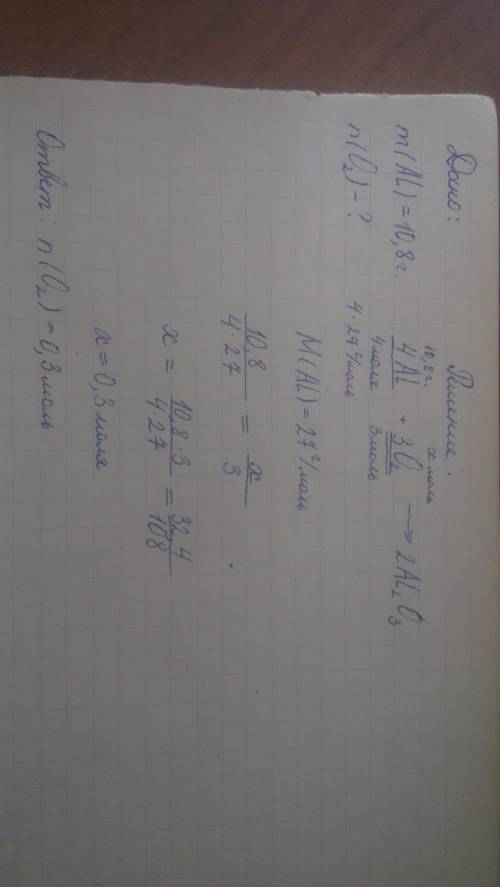 Дано:
m(Al) = 10,8 г.
n(O₂) - ?
Решение:
10,8 г. x моль
4Al + 3O₂ → 2Al₂O₃
4 моля 3 моль
4·27 г/моль
M(Al) = 27 г/моль
10,8/4·27 = x/3
x = 10,8·3/4·27 = 32,4/108
x = 0,3 моля
Ответ: n(O₂) = 0,3 моль